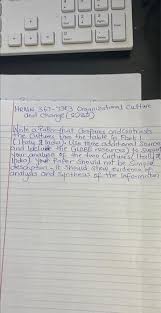 367-
Organizational Culture
and Change (
Write a Paper that Compares and Contrasts
the Cultures from the table in Part 1
(Italy & India). Use three additional source
and include the GLOBE resources) to support
your analysis of the two Cultures (Italy &
India). Your Paper should not be Simple
description - it should show evidence of
analysis and Synthesis of the information